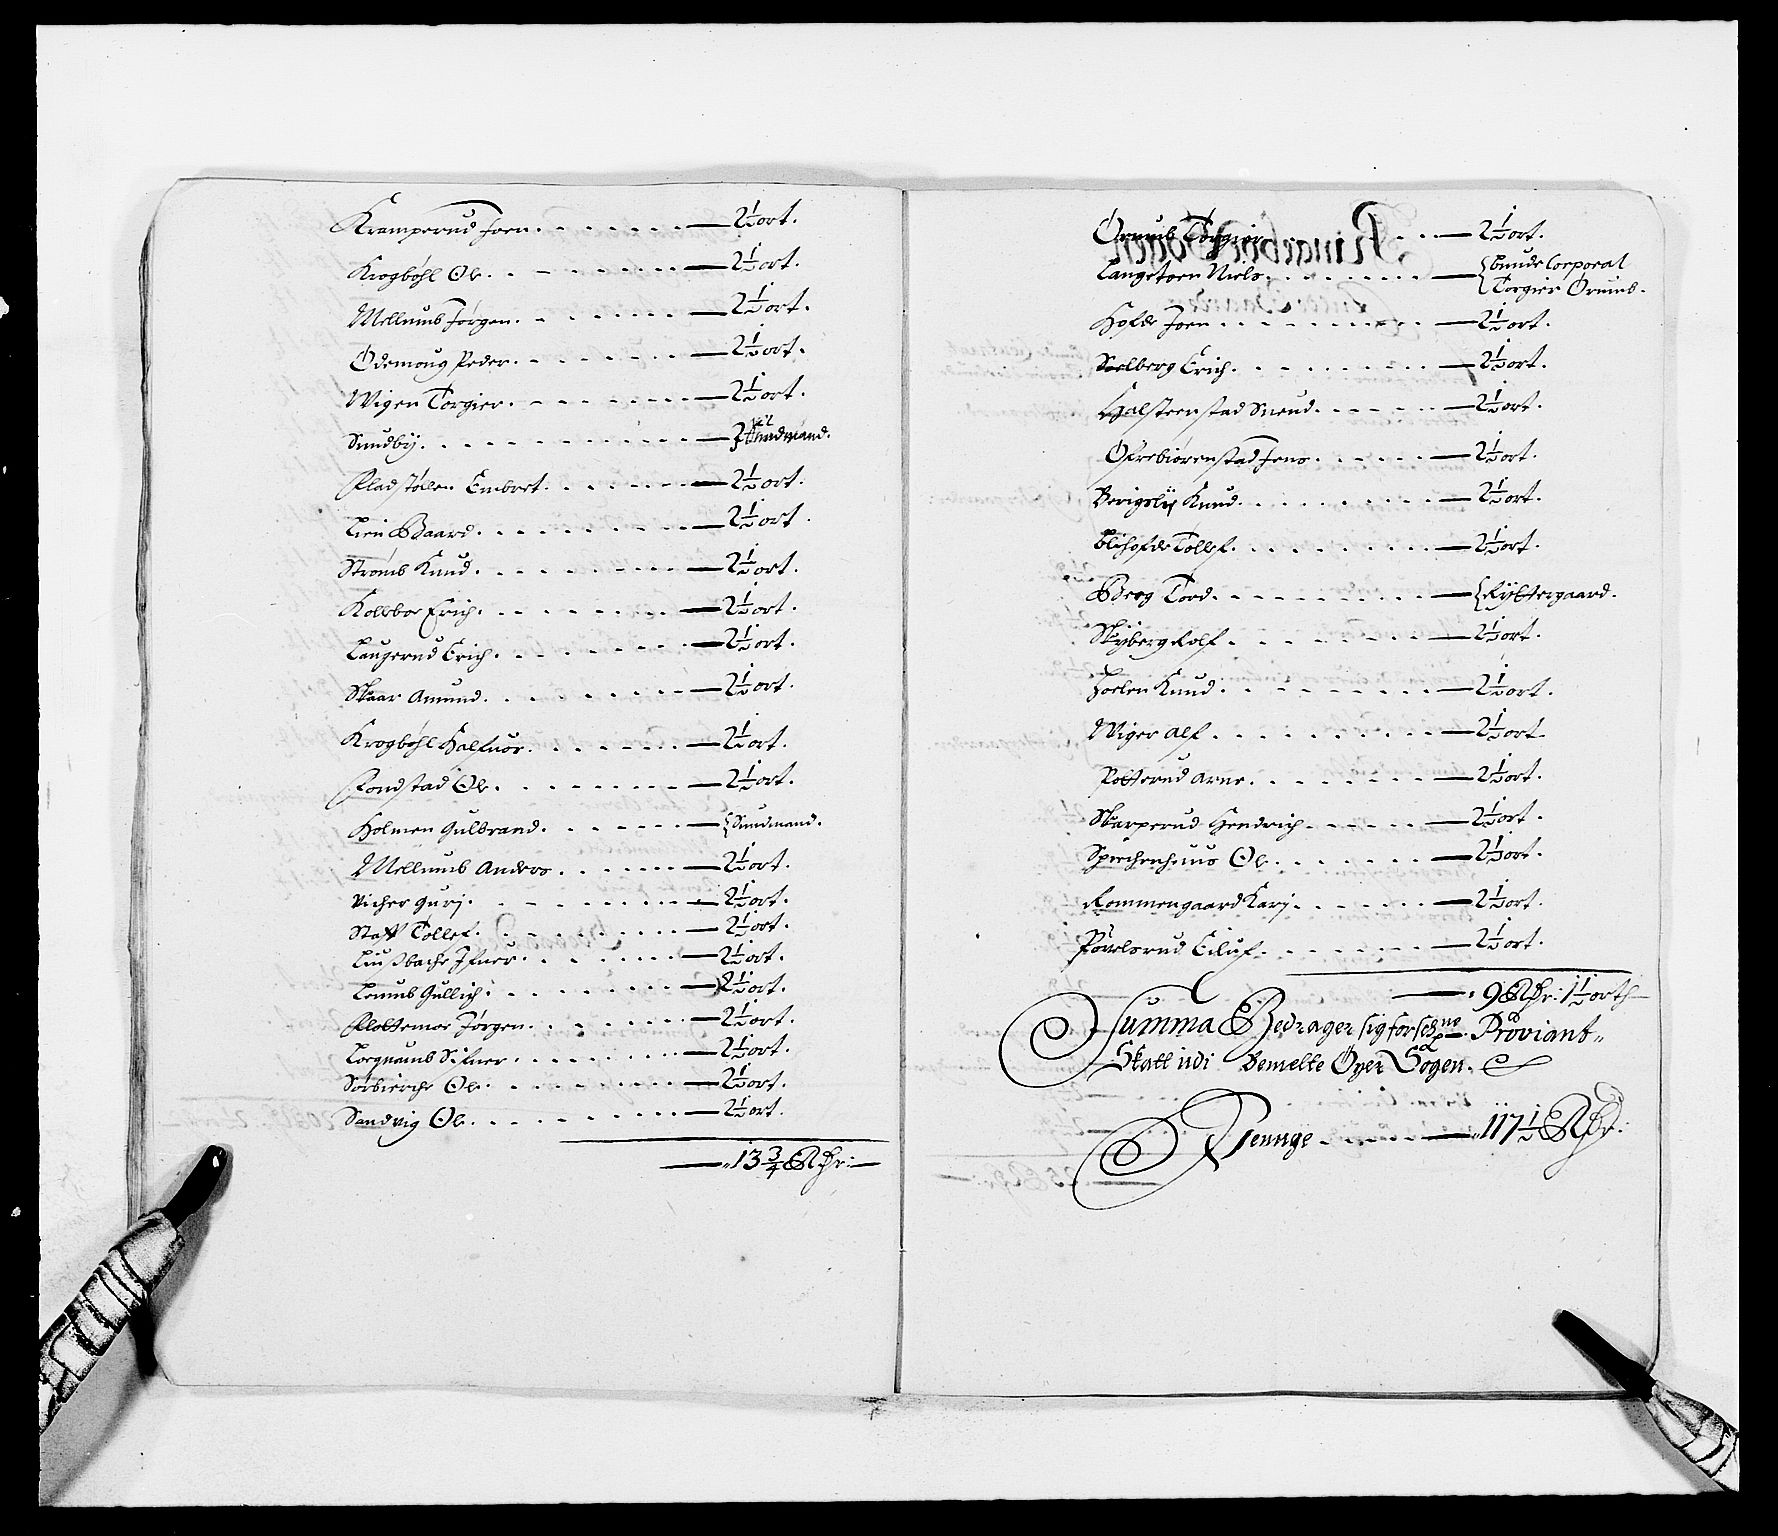 Kramperud Joen. — 2½ ort.
Krogbøhl Ole. — 2½ ort.
Mellumb Jørgen. — 2½ ort.
Ødemoug Peder. — 2½ ort.
Wigen Torgier. — 2½ ort.
Sundby.
Fladstølen Embret. — 2½ ort.
Lien Baard. — 2½ ort.
Strømb Knud. — 2½ ort.
Kolleboe Erich. — 2½ ort.
Laugerud Erich. — 2½ ort.
Skaar Amund. — 2½ ort.
Krogbøhl Halfuor. — 2½ ort.
Fondstad Ole. — 2½ ort.
Holmen Gulbrand. — { Sundmand.
Mellumb Anders. — 2½ ort.
Vicher Gurj. — 2½ ort.
Staff Tollef. — 2½ ort.
Liußbache Ifuer. — 2½ ort.
Lomb Gullich. — 2½ ort.
Flottemoe Jørgen. — 2½ ort.
Lorgnamb Sifuer. — 2½ ort.
Sørbierche Ole. — 2½ ort.
Sandvig Ole. — 2½ ort.
— 13¾ Rdr: —
Ørumb Torgier — 2½ ort.
Langetøen Niels. — { Lunde Corporal
Torgier Ørumb.
Hofde Joen. — 2½ ort.
Soelberg Erich. — 2½ ort.
Halsteenstad Sneud. — 2½ ort.
Øfrebiørenstad Jens. — 2½ ort.
Berigslij Knud. — 2½ ort.
Blihofde Tollef. — 2½ ort.
Berg Tord. — { Rÿttergaard.
Skÿberg Rolf. — 2½ ort.
Joelen Knud. — 2½ ort.
Wiger Alf. — 2½ ort.
Potterud Arne. — 2½ ort.
Skarperud Hendrich. — 2½ ort.
Spichenheus Ole. — 2½ ort.
Rommengaard Karj. — 2½ ort.
Povelsrud Eiluf. — 2½ ort.
— 9 Rdr: 1½ orth
Summa Bedrager sig forschne Proviant-
Skatt udi Bemelte Øyer Sogen.
Pennge — 117½ Rdr: